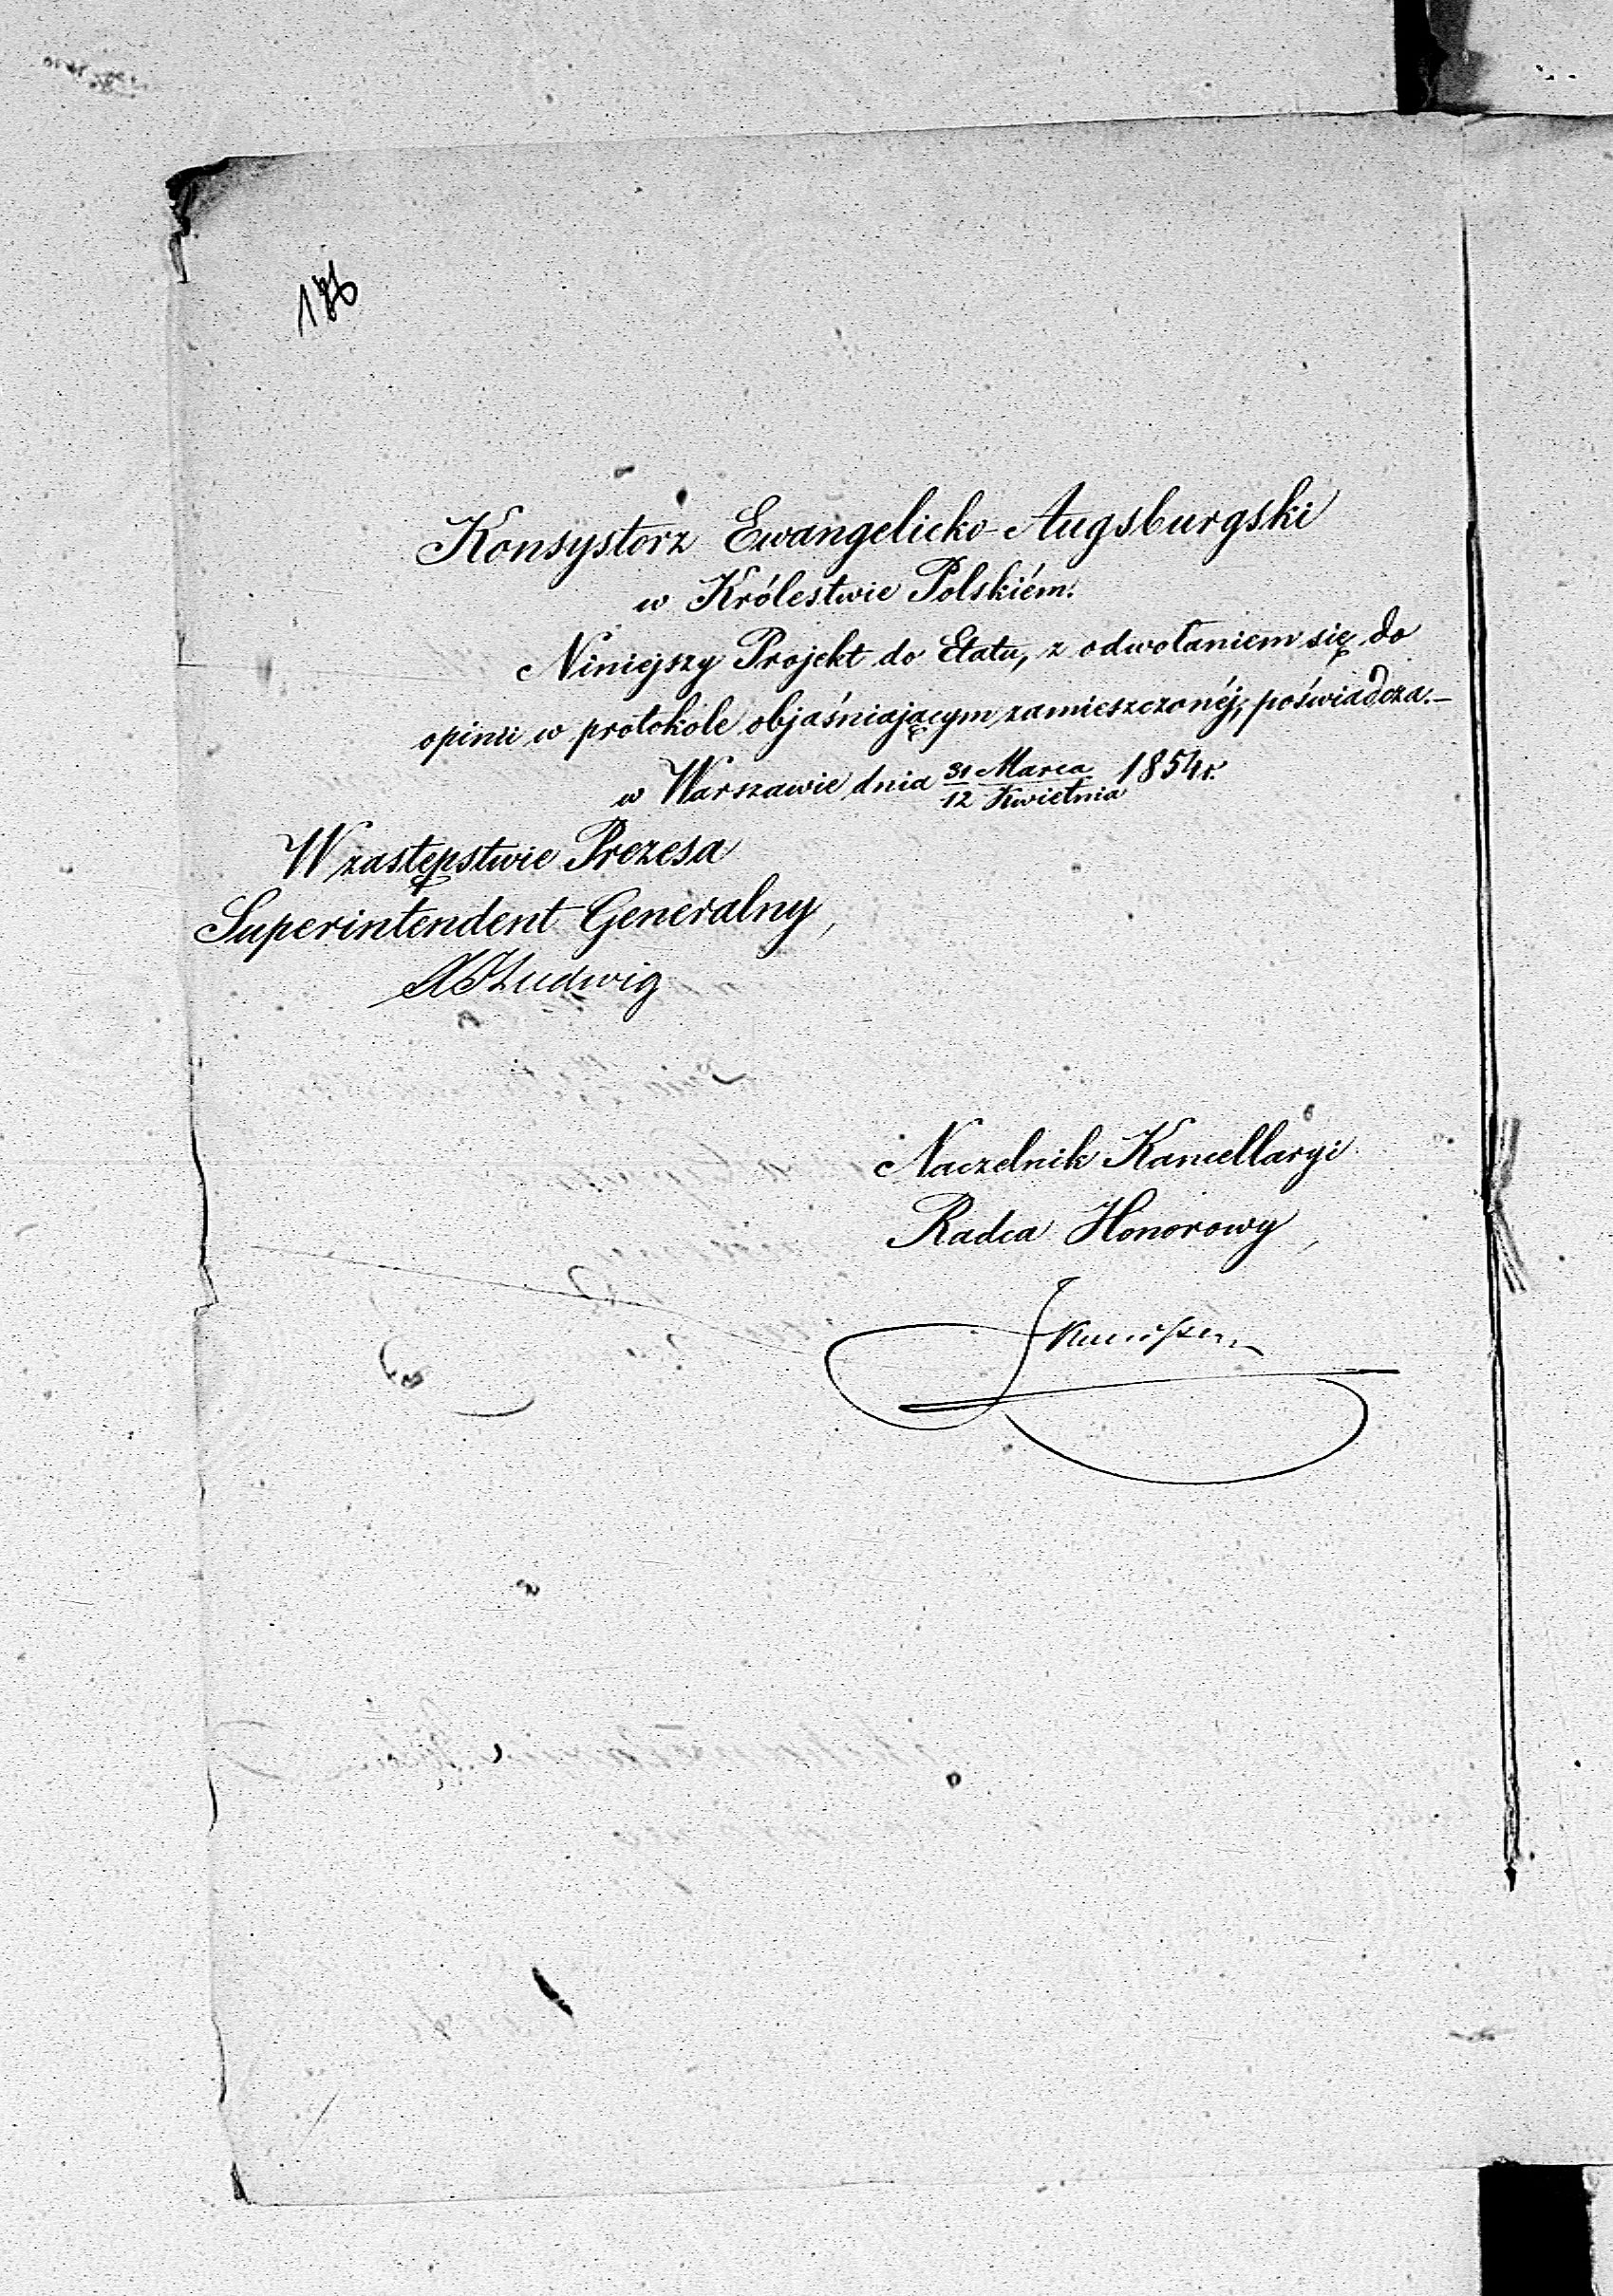 Konsystorz Ewangelicko-Augsburgski
w Królestwie Polskiém.
Niniejszy Projekt do Etatu, z odwołaniem się do
opinii w protokóle objaśniającym zamieszczonéj, poświadcza.-
w Warszawie dnia 31 Marca / 12 Kwietnia 1854 r.
W zastępstwie Prezesa
Superintendent Generalny,
Ludwig
Naczelnik Kancellaryi
Radca Honorowy,